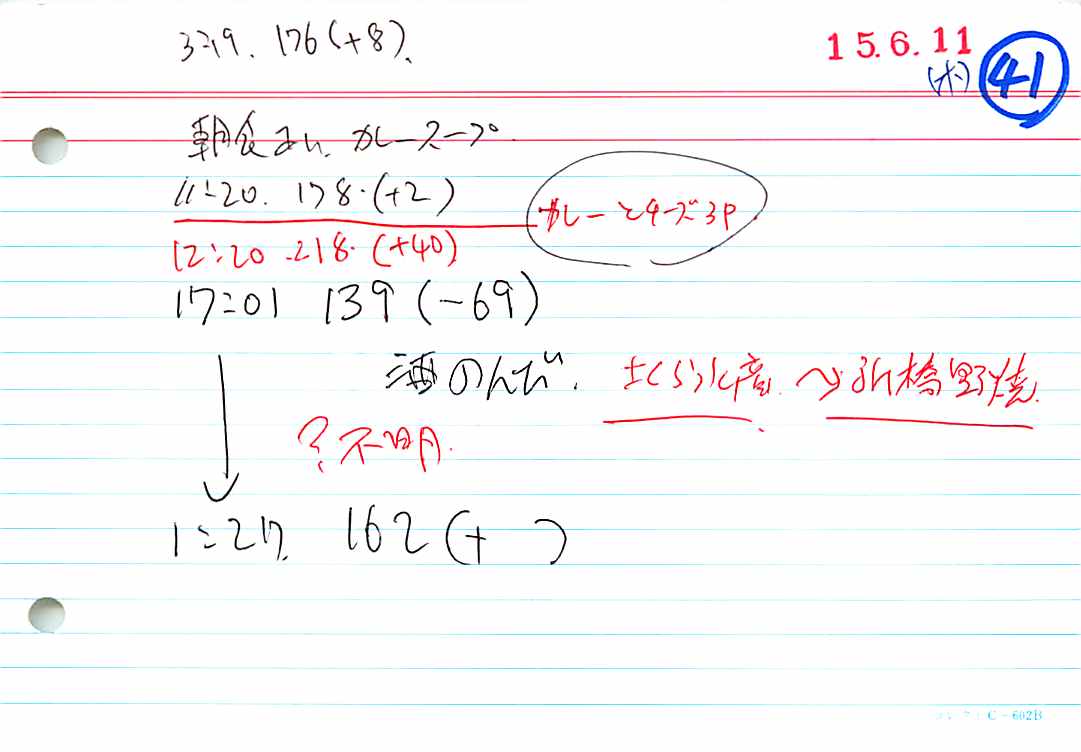 15.6.11
(木) 41
3:19. 176(+8).
朝食まい. カレースープ.
11:20. 178.(+2)
カレーとチーズ3P
12:20 .218. (+40)
17:01 139 (-69)
酒のんだ. さくら水産. 〜新橋野焼.
? 不明.
1:27. 162 (+ )
C-602B